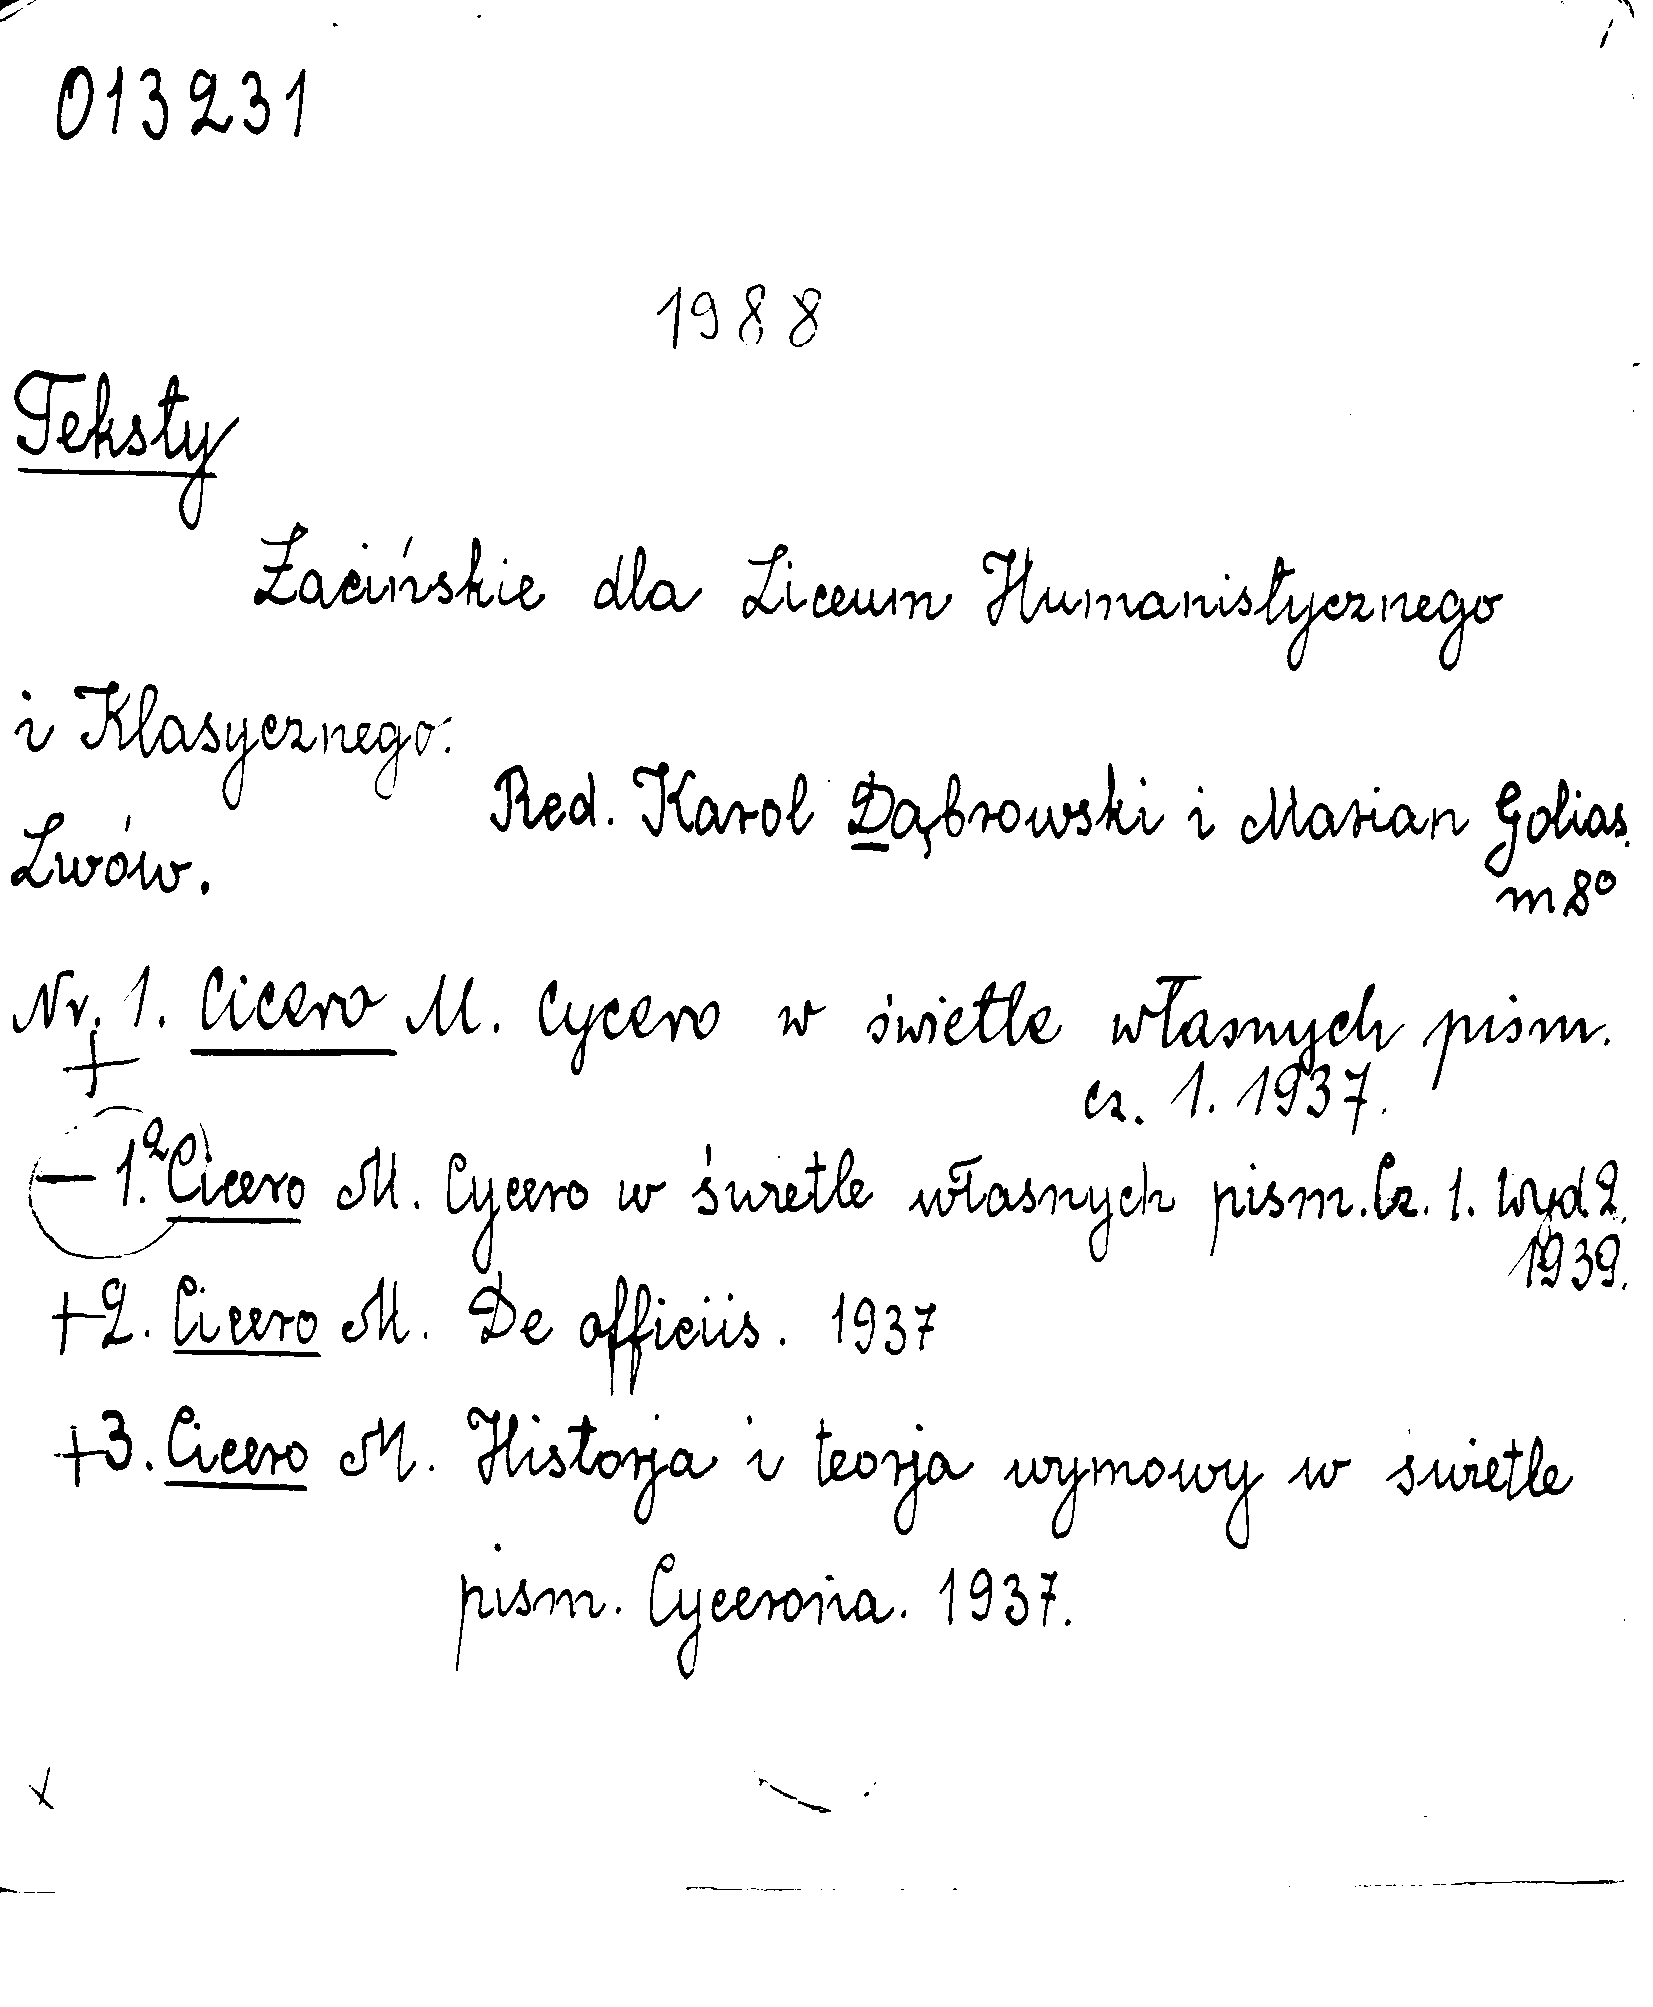 013231
1988
Teksty
Łacińskie dla Liceum Humanistycznego
i Klasycznego.
Red. Karol Dąbrowski i Marian Golias.
Lwów.
m 8°
Nr. 1. Cicero M. Cycero w świetle własnych pism.
+
cz. 1. 1937.
— 1.² Cicero M. Cycero w świetle własnych pism. Cz. 1. Wyd 2.
1939.
+2. Cicero M. De officiis. 1937
+3. Cicero M. Historja i teorja wymowy w swietle
pism. Cycerona. 1937.